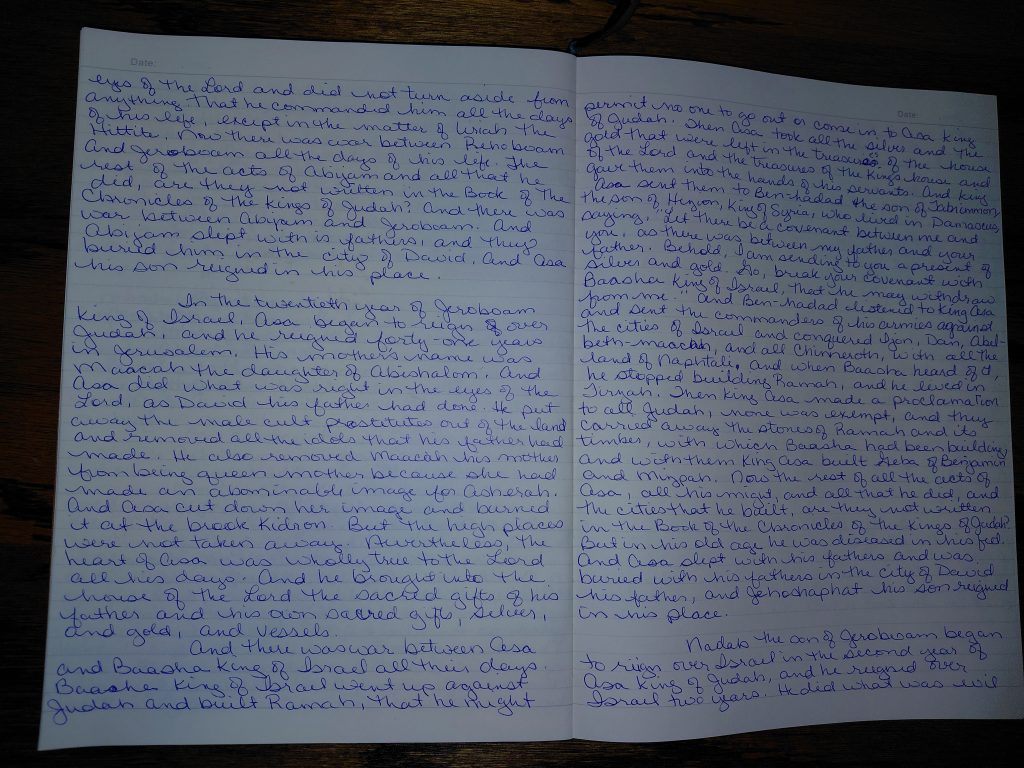 Date:
eyes of the Lord and did not turn aside from
anything that he commanded him all the days
of his life, except in the matter of Uriah the
Hittite. Now there was war between Rehoboam
and Jeroboam all the days of his life. The
rest of the acts of Abijam and all that he
did, are they not written in the Book of the
Chronicles of the Kings of Judah? And there was
war between Abijam and Jeroboam. And
Abijam slept with is fathers, and they
buried him in the city of David. And Asa
his son reigned in his place.
In the twentieth year of Jeroboam
King of Israel, Asa began to reign over
Judah, and he reigned forty-one years
in Jerusalem. His mother's name was
Maacah the daughter of Abishalom. And
Asa did what was right in the eyes of the
Lord, as David his father had done. He put
away the male cult prostitutes out of the land
and removed all the idols that his father had
made. He also removed Maacah his mother
from being queen mother because she had
made an abominable image for Asherah.
And Asa cut down her image and burned
it at the brook Kidron. But the high places
were not taken away. Nevertheless, the
heart of Asa was wholly true to the Lord
all his days. And he brought into the
house of the Lord the sacred gifts of his
father and his own sacred gifts, silver,
and gold, and vessels.
And there was war between Asa
and Baasha King of Israel all their days.
Baasha King of Israel went up against
Judah and built Ramah, that he might
Date:
permit no one to go out or come in to Asa king
of Judah. Then Asa took all the silver and the
gold that were left in the treasures of the house
of the Lord and the treasures of the King's house and
gave them into the hands of his servants. And King
Asa sent them to Ben-hadad the son of Tabrimmon
the son of Hezion, King of Syria, who lived in Damascus,
saying, "Let there be a covenant between me and
you, as there was between my father and your
father. Behold, I am sending to you a present of
silver and gold. Go, break your covenant with
Baasha King of Israel, that he may withdraw
from me." And Ben-hadad listened to King Asa
and sent the commanders of his armies against
the cities of Israel and conquered Ijon, Dan, Abel-
beth-maacah, and all Chinneroth, with all the
land of Naphtali. and when Baasha heard of it,
he stopped building Ramah, and he lived in
Tirzah. Then King Asa made a proclamation
to all Judah, none was exempt, and they
carried away the stones of Ramah and its
timber, with which Baasha had been building
and with them King Asa built Geba of Benjamin
and Mizpah. Now the rest of all the acts of
Asa, all his might, and all that he did, and
the cities that he built, are they not written
in the Book of the Chronicles of the Kings of Judah?
But in his old age he was diseased in his feet.
And Asa slept with his fathers and was
buried with his fathers in the city of David
his father, and Jehoshaphat his son reigned
in his place.
Nadab the son of Jeroboam began
to reign over Israel in the second year of
Asa king of Judah, and he reigned over
Israel two years. He did what was evil